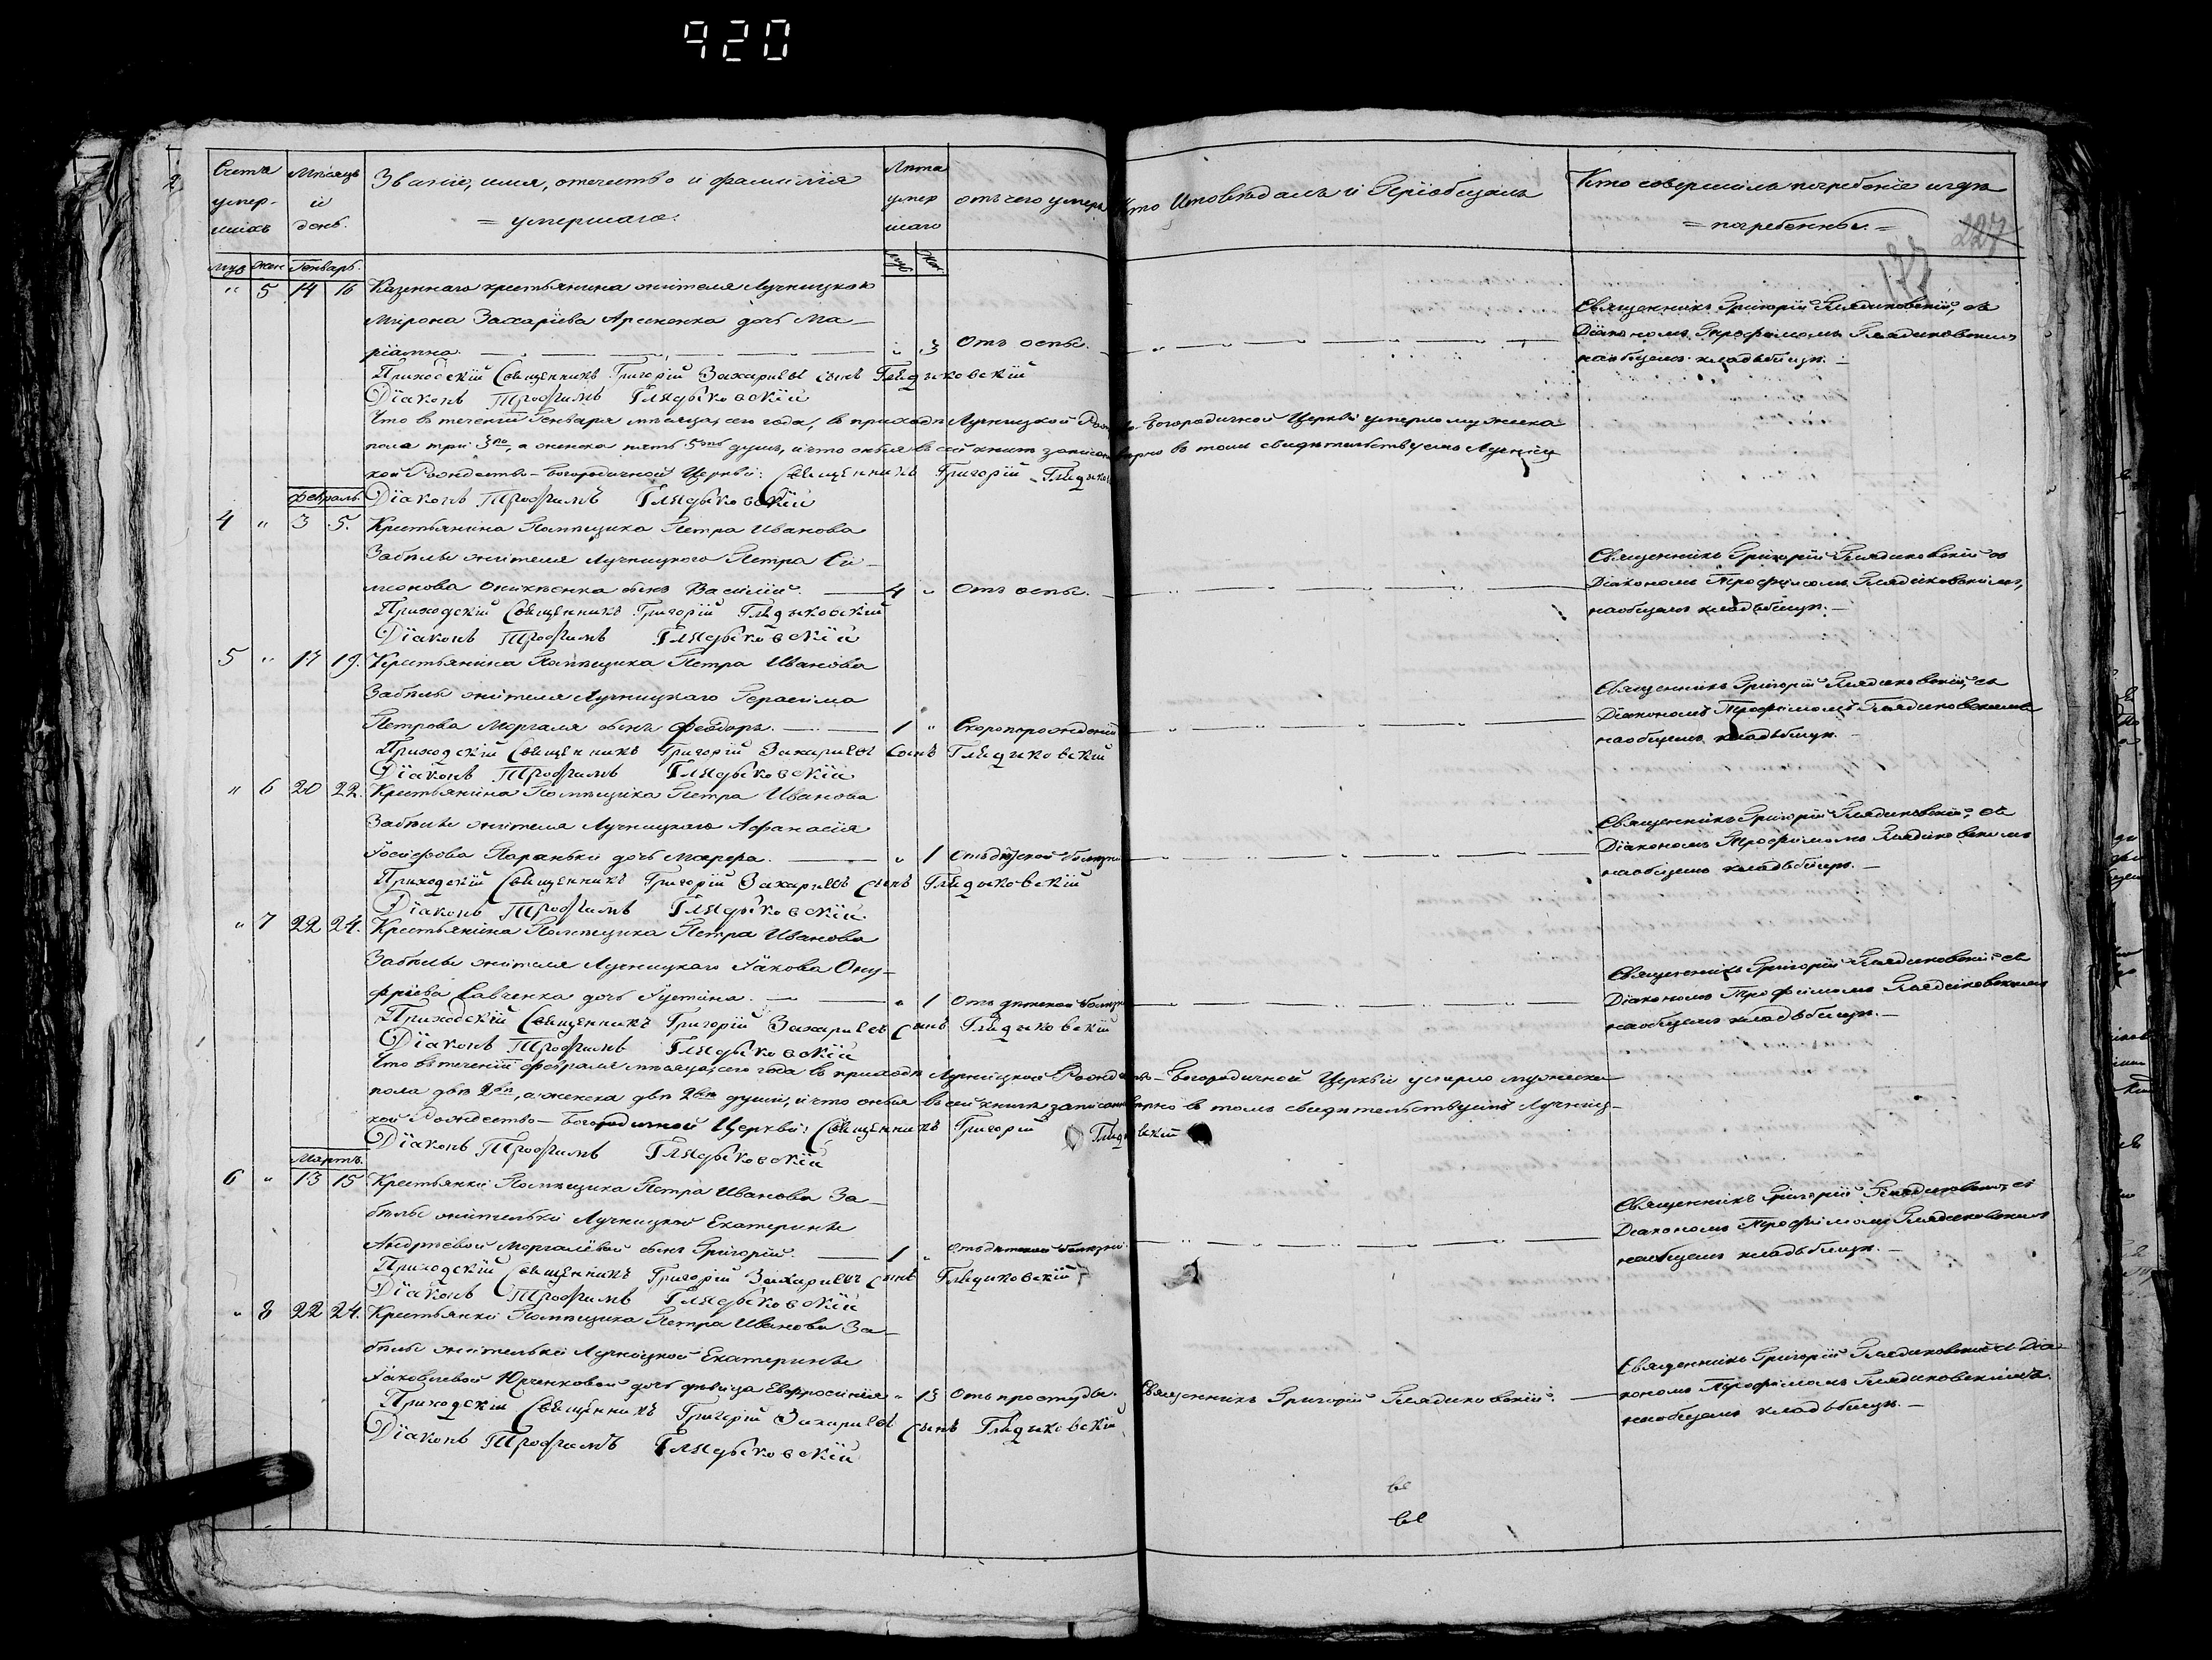 920
2
Счетъ умер- шихъ
Мѣсяцъ и день.
Званіе, имя, отечество и фамилія
= умершаго.
Лѣта умер шаго
отъ чего умеръ
Кто Исповѣдалъ и Пріобщалъ
Кто совершилъ погребеніе и гдѣ
= погребенны. =
227
муж жен Генварь.
муж жен
" 5 14 16 Казеннаго крестьянина жителя Лучницкого
Мирона Захаріева дочь Ма-
ріамна. " 3 Отъ оспы.
Священникъ Григорій Глядиковскій, съ
Діакономъ Трофимомъ Глядиковскимъ
на общемъ кладбищѣ.
Приходскій Священникъ Григорій Захаріевъ сынъ Глядыковскій
Діаконъ Трофимъ Глядыковскій
Что въ теченіи Генваря мѣсяца, сего года, въ приходѣ Лучницкой Рождество-Богородичной Церкви умерло мужеска
пола три 3ло, а женска пять 5ть душъ, и что оныя въ сей книгѣ записаны вѣрно въ томъ свидѣтельствуемъ Лучниц-
кой Рождество-Богородичной Церкви: Священникъ Григорій Глядыков
Февраль. Діаконъ Трофимъ Глядыковскій
4 " 3 5. Крестьянина Помѣщика Петра Иванова
Забѣлы жителя Лучницкого Петра Си-
меонова сынъ Василій. 4 " Отъ оспы.
Священникъ Григорій Глядиковскій съ
Діакономъ Трофимомъ Глядиковскимъ,
на общемъ кладбищѣ.
Приходскій Священникъ Григорій Глядыковскій
Діаконъ Трофимъ Глядыковскій
5 " 17 19. Крестьянина Помѣщика Петра Иванова
Забѣлы жителя Лучницкаго Герасима
Петрова Моргаля сынъ Феодоръ. 1 "
Священникъ Григорій Глядиковскій, съ
Діакономъ Трофимомъ Глядиковскимъ
на общемъ кладбищѣ.
Приходскій Священникъ Григорій Захаріевъ Сынъ Глядыковскій
Діаконъ Трофимъ Глядыковскій
" 6 20 22. Крестьянина Помѣщика Петра Иванова
Забѣлы жителя Лучницкаго Афанасія
Іосифова Параньки дочь Марфа. " 1 Отъ дѣтской болѣзни
Священникъ Григорій Глядиковскій, съ
Діакономъ Трофимомъ Глядиковскимъ
на общемъ кладбищѣ.
Приходскій Священникъ Григорій Захаріевъ сынъ Глядыковскій
Діаконъ Трофимъ Глядыковскій.
" 7 22 24. Крестьянина Помѣщика Петра Иванова
Забѣлы жителя Лучницкаго Іакова Ону-
фріева Савченка дочь Іустина. " 1 Отъ дѣтской болѣзни
Священникъ Григорій Глядиковскій съ
Діакономъ Трофимомъ Глядиковскимъ
на общемъ кладбищѣ.
Приходскій Священникъ Григорій Захаріевъ Сынъ Глядыковскій
Діаконъ Трофимъ Глядыковскій
Что въ теченіи Февраля мѣсяца, сего года въ приходѣ Лучницкой Рождество-Богородичной Церкви умерло мужеска
пола двѣ 2вѣ, а женска двѣ 2вѣ души, и что оныя въ сей книгѣ записаны вѣрно въ томъ свидѣтельствуемъ Лучниц-
кой Рождество-Богородичной Церкви: Священникъ Григорій
Мартъ. Діаконъ Трофимъ Глядыковскій
6 " 13 15 Крестьянки Помѣщика Петра Иванова За-
бѣлы жительки Лучницкой Екатерины
Андреевой Моргалёвой сынъ Григорій. 1 " Отъ дѣтской болѣзни.
Священникъ Григорій Глядиковскій, съ
Діакономъ Трофимомъ Глядиковскимъ
на общемъ кладбищѣ.
Приходскій Священникъ Григорій Захаріевъ сынъ Глядыковскій
Діаконъ Трофимъ Глядыковскій
" 8 22 24. Крестьянки Помѣщика Петра Иванова За-
бѣлы жительки Лучницкой Екатерины
Іаковлевой Юрченковой дочь дѣвица Евфросинія " 13 Отъ простуды. Священникъ Григорій Глядиковскій.
Священникъ Григорій Глядиковскій съ Діа-
кономъ Трофимомъ Глядиковскимъ.
на общемъ кладбищѣ.
Приходскій Священникъ Григорій Захаріевъ Сынъ Глядыковскій
Діаконъ Трофимъ Глядыковскій